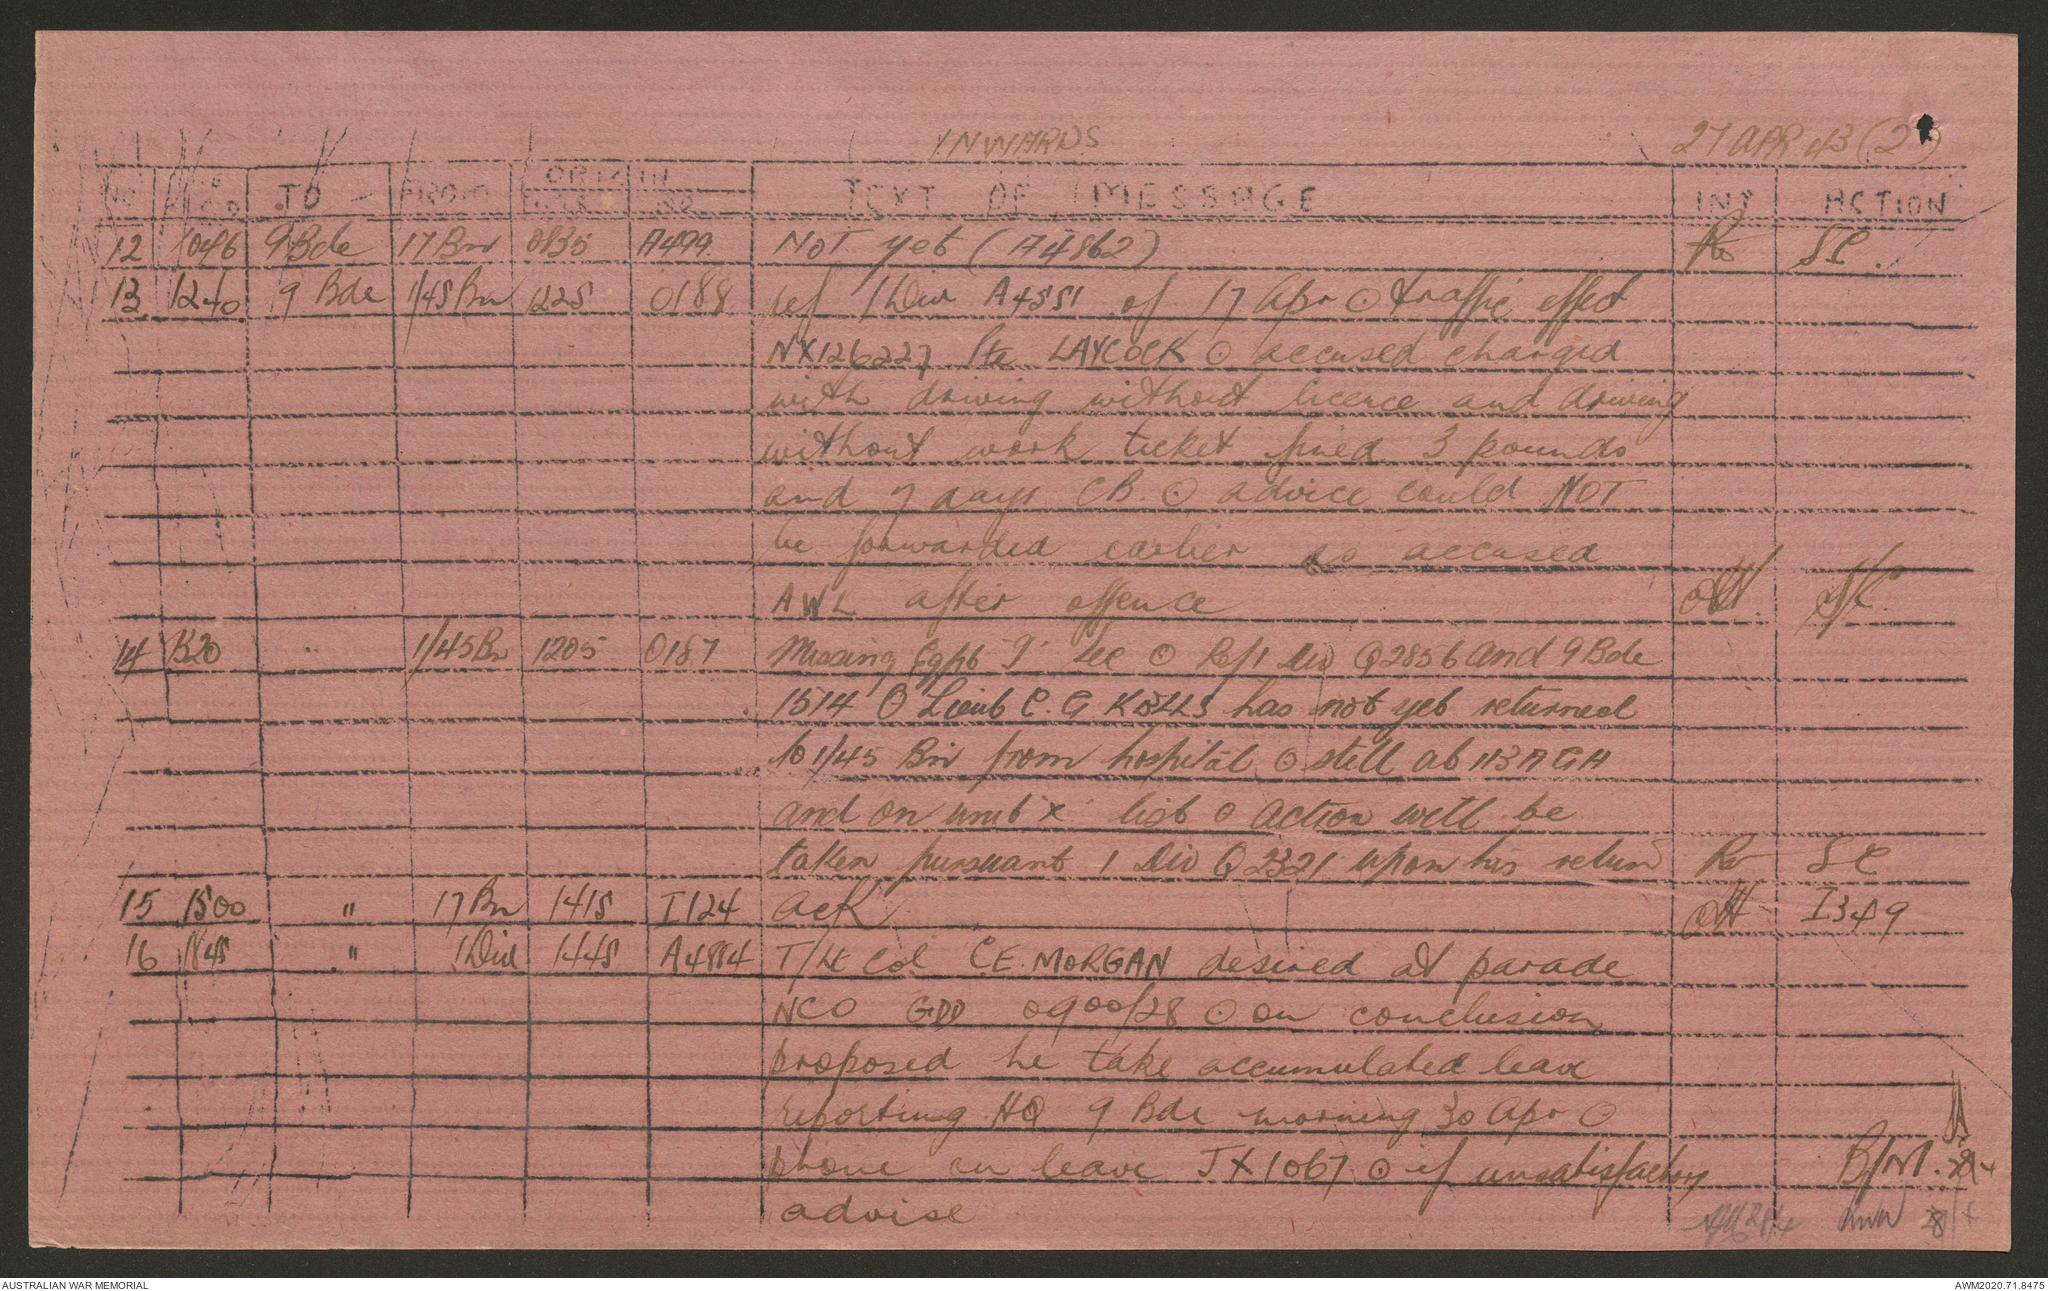 INWARDS 27 APR 43 (2)
NO TO FROM ORIGIN NO TEXT OF MESSAGE INT ACTION
12 1046 9 Bde 17 Bn 0835 A499 NOT yet (A4862) SC.
13 1240 9 Bde 1/45 Bn 1225 O188 ref 1 Div A4551 of 17 Apr ⊙ traffic effect
NX126227 Pte LAYCOCK ⊙ accused charged
with driving without licence and driving
without work ticket fined 3 pounds
and 7 days CB. ⊙ advice could NOT
be forwarded earlier as accused
AWL after offence S/C.
14 1320 " 1/45 Bn 1205 O187 Missing Egpt I Sec ⊙ Ref 1 Div Q2856 and 9 Bde
1514 ⊙ Lieut C. G has not yet returned
to 1/45 Bn from hospital ⊙ still at 113 AGH
and on unit X list ⊙ action will be
taken pursuant 1 Div Q2321 upon his return SC
15 1500 " 17 Bn 1415 I124 ack I349
16 " 1 Div 1445 A4884 T/Lt Col C.E. MORGAN desired at parade
NCO GDD 0900/28 ⊙ on conclusion
proposed he take accumulated leave
reporting HQ 9 Bde morning 30 Apr ⊙
phone on leave JX1067 ⊙ if unsatisfactory B/M.
advise
AUSTRALIAN WAR MEMORIAL AWM2020.71.8475